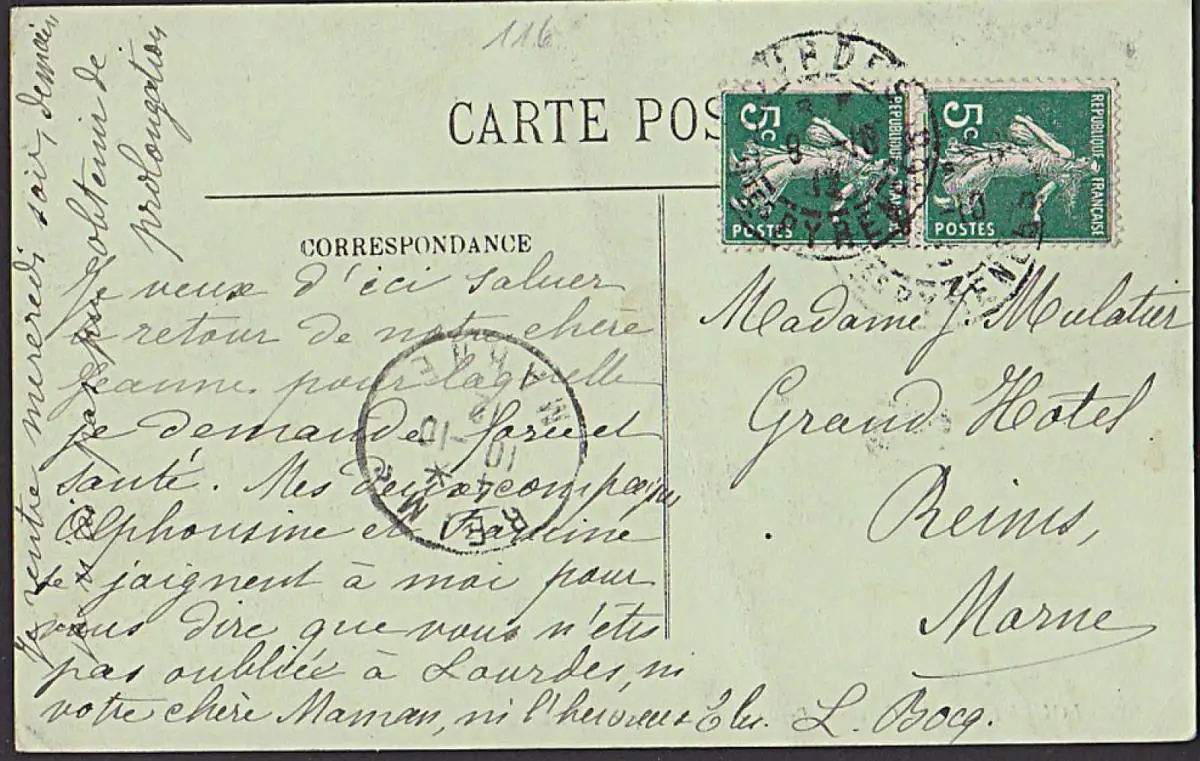 116
CARTE POS
5c
REPUBLIQUE FRANCAISE
POSTES
5c
REPUBLIQUE FRANCAISE
POSTES
CORRESPONDANCE
Je veux d'ici saluer
le retour de notre chère
Jeanne pour laquelle
je demande force et
santé. Mes deux compagnes
Alphonsine et
se joignent à moi pour
vous dire que vous n'êtes
pas oubliée à Lourdes, ni
votre chère Maman, ni l'heureux
L. Bocq.
Je rentre mercredi soir, demain
je n'ai pas pu obtenir de
prolongation
Madame J. Mulatier
Grand Hotel
Reims,
Marne
REIMS
MARNE